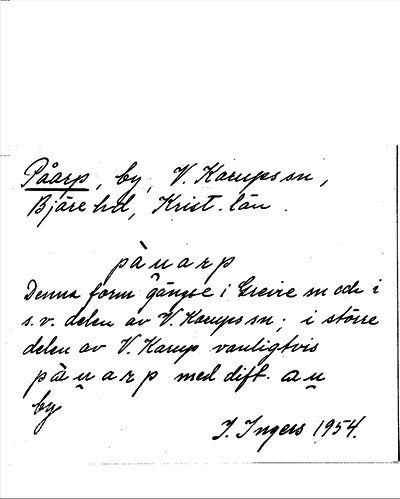 Påarp, by, V. Karups sn,
Bjäre hd, Krist. län.
pàu̯arp
Denna form gängse i Grevie sn och i
s.v. delen av V. Karups sn; i större
delen av V. Karup vanligtvis
pàu̯arp med dift. au̯
by
I. Ingers 1954.